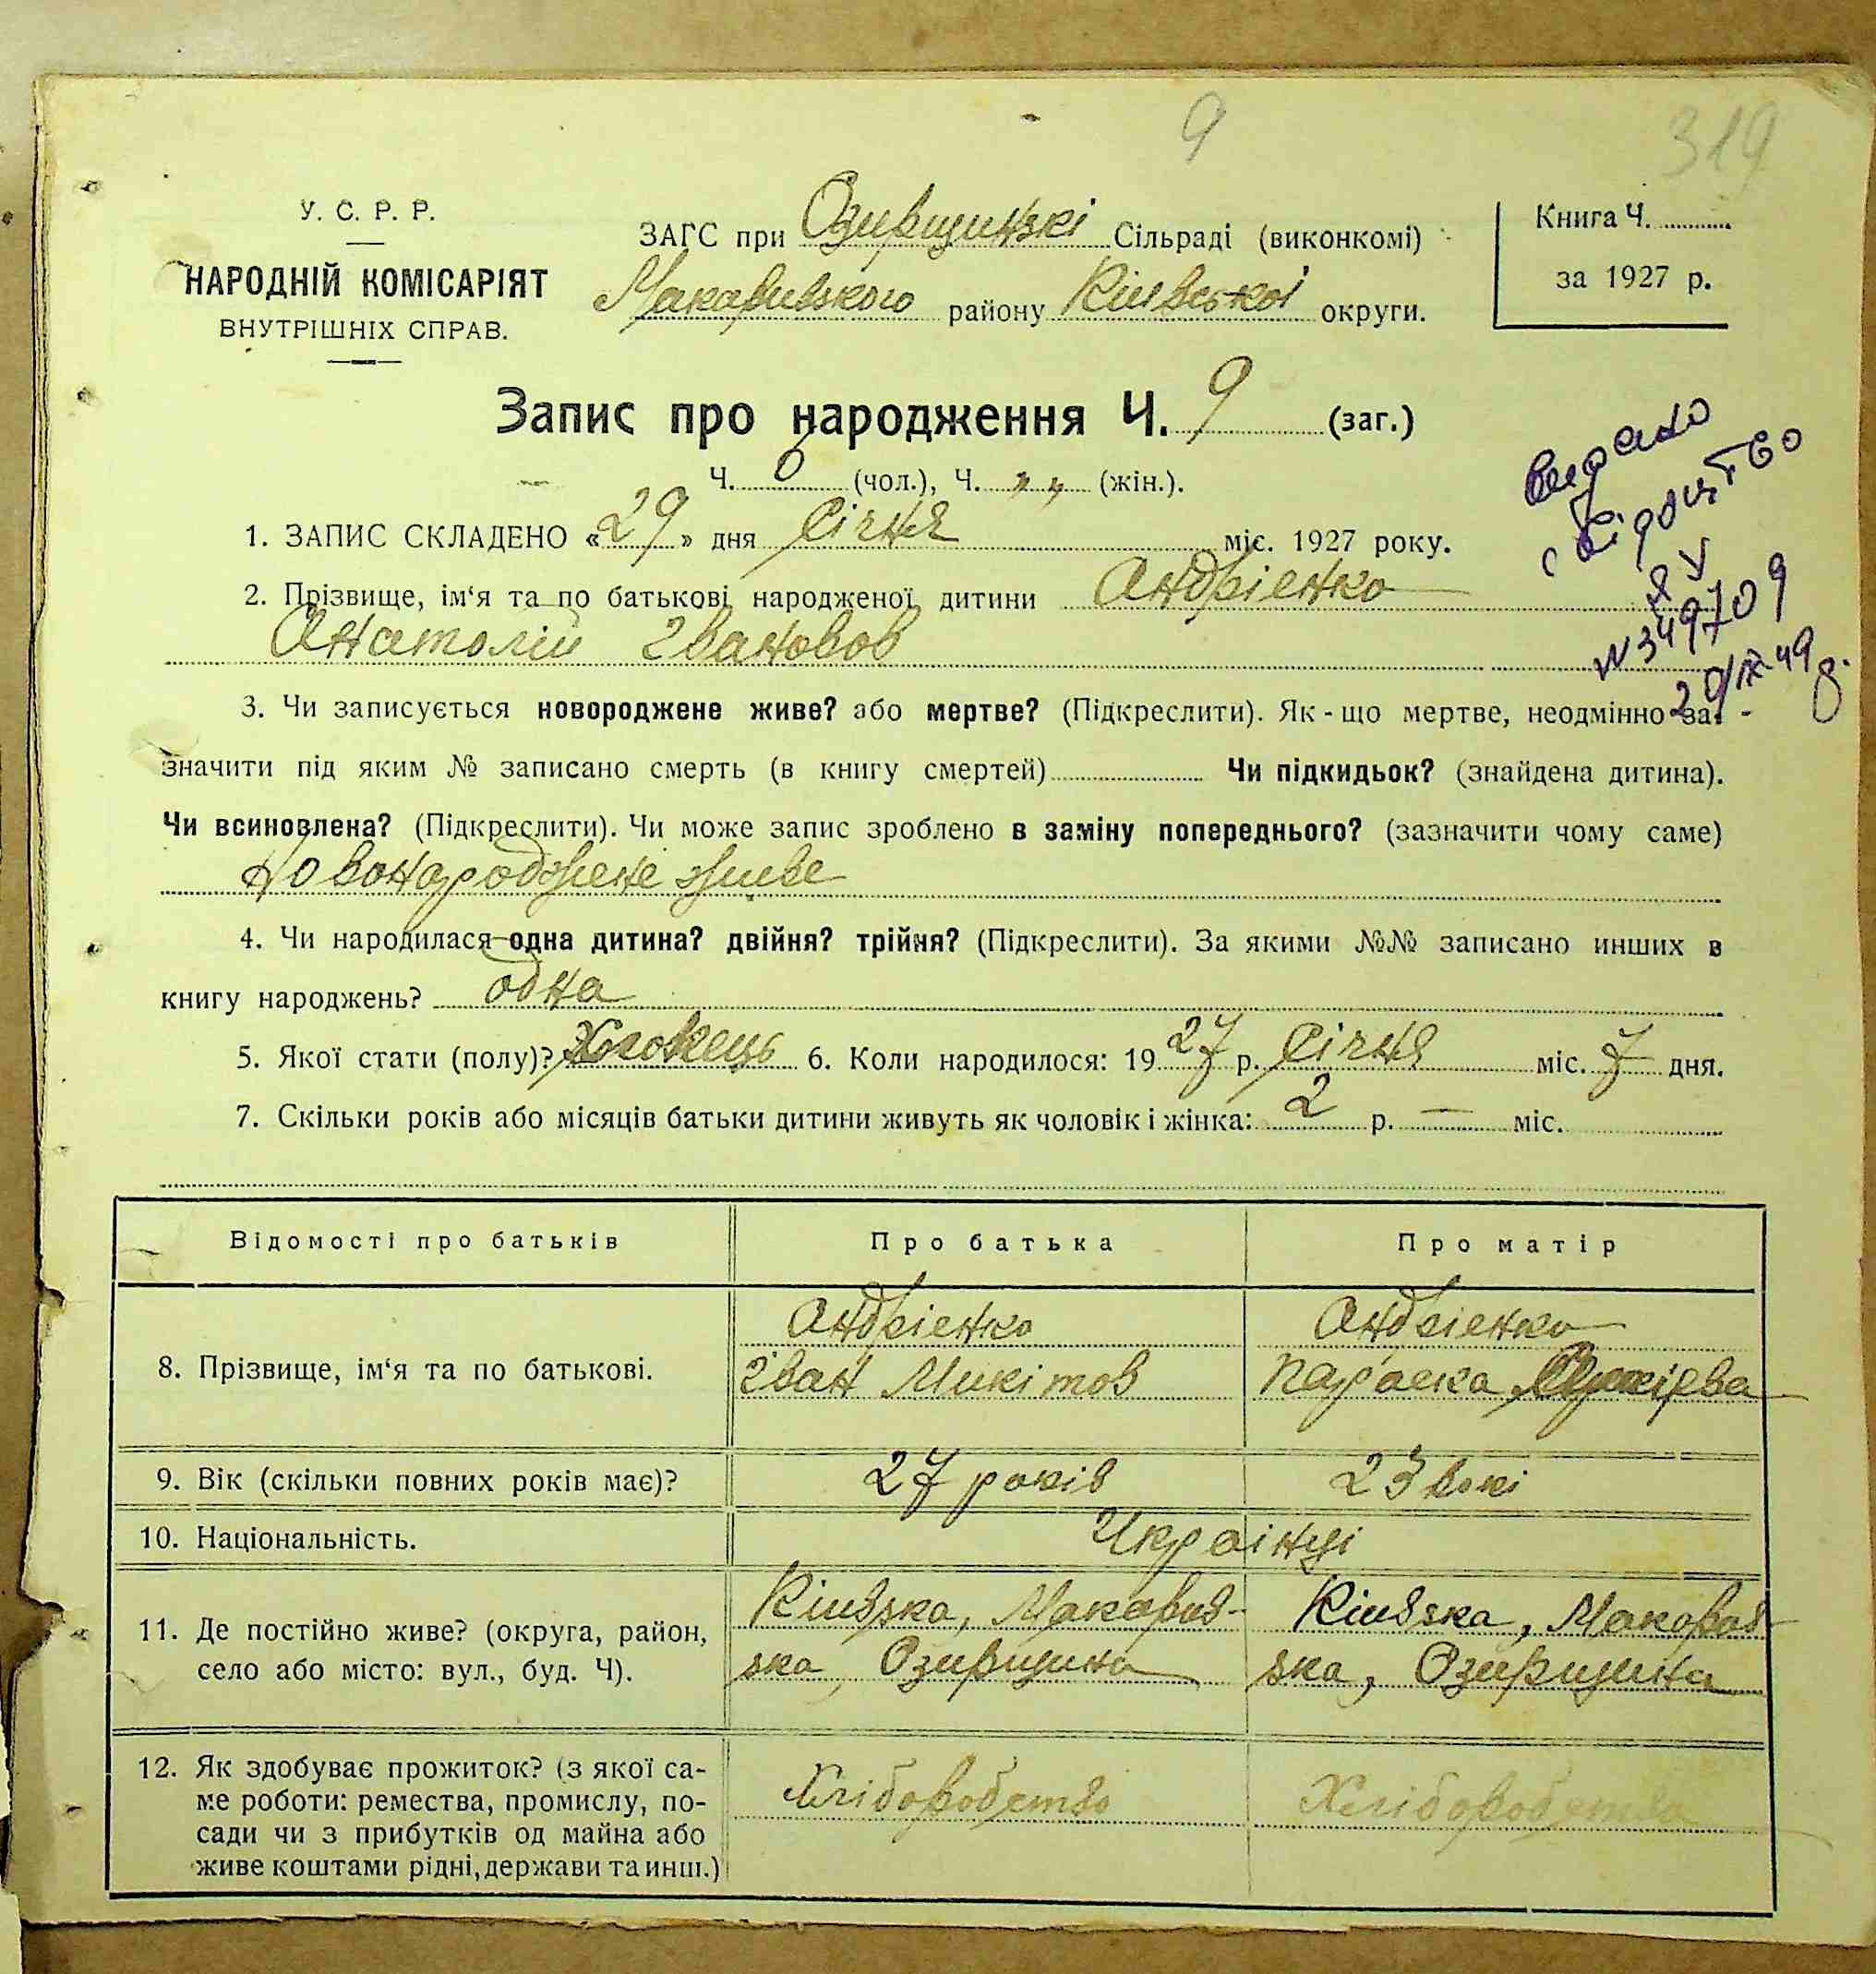 9
319
У. С. Р. Р.
НАРОДНІЙ КОМІСАРІЯТ
ВНУТРІШНІХ СПРАВ.
ЗАГС при Озирщинзкі Сільраді (виконкомі)
Макаривзкого району Киівської округи.
Книга Ч.
за 1927 р.
Запис про народження Ч. 9 (заг.)
Ч. 6 (чол.), Ч. „ „ (жін.).
1. ЗАПИС СКЛАДЕНО «29» дня Січня міс. 1927 року.
2. Прізвище, ім‘я та по батькові народженої дитини Андрієнко
Анатолій Івановов
видано
свідоцтво
№ 349709
29/IX-49
3. Чи записується новороджене живе? або мертве? (Підкреслити). Як-що мертве, неодмінно за-
значити під яким № записано смерть (в книгу смертей) Чи підкидьок? (знайдена дитина).
Чи всиновлена? (Підкреслити). Чи може запис зроблено в заміну попереднього? (зазначити чому саме)
Новонароджене живе
4. Чи народилася одна дитина? двійня? трійня? (Підкреслити). За якими №№ записано инших в
книгу народжень? одна
5. Якої стати (полу)? Хловець 6. Коли народилося: 1927 р. Січня міс. 7 дня.
7. Скільки років або місяців батьки дитини живуть як чоловік і жінка: 2 р. — міс.
Відомості про батьків Про батька Про матір
8. Прізвище, ім‘я та по батькові.
Андрієнко Андрієнко
Іван Микітов Параска
9. Вік (скільки повних років має)? 27 років 23 рокі
10. Національність. Украінці
11. Де постійно живе? (округа, район,
село або місто: вул., буд. Ч).
Киівзка, Макарив- Киівзка, Макаров-
зка, Озирщина зка, Озирщина
12. Як здобуває прожиток? (з якої са-
ме роботи: ремества, промислу, по-
сади чи з прибутків од майна або
живе коштами рідні, держави та инш.)
Хліборобство Хліборобства